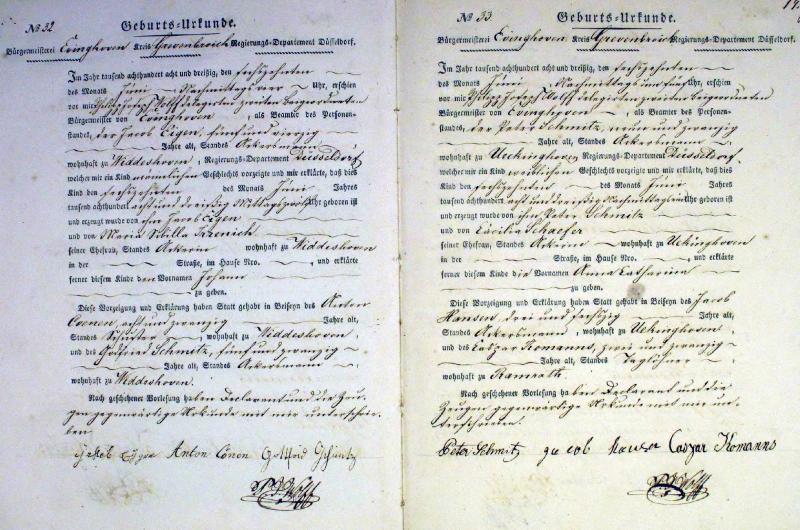 No 32
Geburts-Urkunde.
Bürgermeisterei Evinghoven Kreis Grevenbroich Regierungs-Departement Düsseldorf.
Im Jahr tausend achthundert acht und dreißig, den sechszehnten
des Monats Juni Nachmittags vier Uhr, erschien
vor mir Joseph Wolff delegirten zweiten Beigeordneten
Bürgermeister von Evinghoven, als Beamter des Personen-
standes, der Jacob Eigen, fünf und vierzig
Jahre alt, Standes Ackersmann
wohnhaft zu Widdeshoven, Regierungs-Departement Duesseldorf,
welcher mir ein Kind männlichen Geschlechts vorzeigte und mir erklärte, daß dies
Kind den sechszehnten des Monats Juni Jahres
tausend achthundert acht und dreißig Mittags zwölf Uhr geboren ist
und erzeugt wurde von ihm Jacob Eigen
und von Maria Sibilla
seiner Ehefrau, Standes Ackerin wohnhaft zu Widdeshoven
in der Straße, im Hause Nro. , und erklärte
ferner diesem Kinde den Vornamen Johann
zu geben.
Diese Vorzeigung und Erklärung haben Statt gehabt in Beiseyn des Anton
Coenen, acht und zwanzig Jahre alt,
Standes Schuster, wohnhaft zu Widdeshoven,
und des Godfried Schmitz, fünf und zwanzig
Jahre alt, Standes Ackersmann
wohnhaft zu Widdeshoven.
Nach geschehener Vorlesung haben Declarant und die Zeu-
gen gegenwärtige Urkunde mit mir unterschrie-
ben
Jakob Eigen Anton Cönen Gottfried Schmitz
Wolff
No 33
Geburts-Urkunde.
Bürgermeisterei Evinghoven Kreis Grevenbroich Regierungs-Departement Düsseldorf.
Im Jahr tausend achthundert acht und dreißig, den sechszehnten
des Monats Juni Nachmittags um fünf Uhr, erschien
vor mir Joseph Wolff delegirten zweiten Beigeordneten
Bürgermeister von Evinghoven, als Beamter des Personen-
standes, der Peter Schmitz, neun und zwanzig
Jahre alt, Standes Ackersmann
wohnhaft zu Ueckinghoven Regierungs-Departement Duesseldorf
welcher mir ein Kind weiblichen Geschlechts vorzeigte und mir erklärte, daß dies
Kind den sechszehnten des Monats Juni Jahres
tausend achthundert acht und dreißig Nachmittags Uhr geboren ist
und erzeugt wurde von ihm Peter Schmitz
und von Cäcilia Schaefer
seiner Ehefrau, Standes Ackerin wohnhaft zu Uekinghoven
in der Straße, im Hause Nro. , und erklärte
ferner diesem Kinde die Vornamen Anna Catharina
zu geben.
Diese Vorzeigung und Erklärung haben Statt gehabt in Beiseyn des Jacob
Hansen, drei und sechszig Jahre alt,
Standes Ackersmann, wohnhaft zu Uekinghoven,
und des Caspar Komanns, zwei und zwanzig
Jahre alt, Standes Taglöhner
wohnhaft zu Ramrath
Nach geschehener Vorlesung haben Declarant und die
Zeugen gegenwärtige Urkunde mit mir un-
terschrieben.
Peter Schmitz jacob hansen Caspar Komanns
Wolff